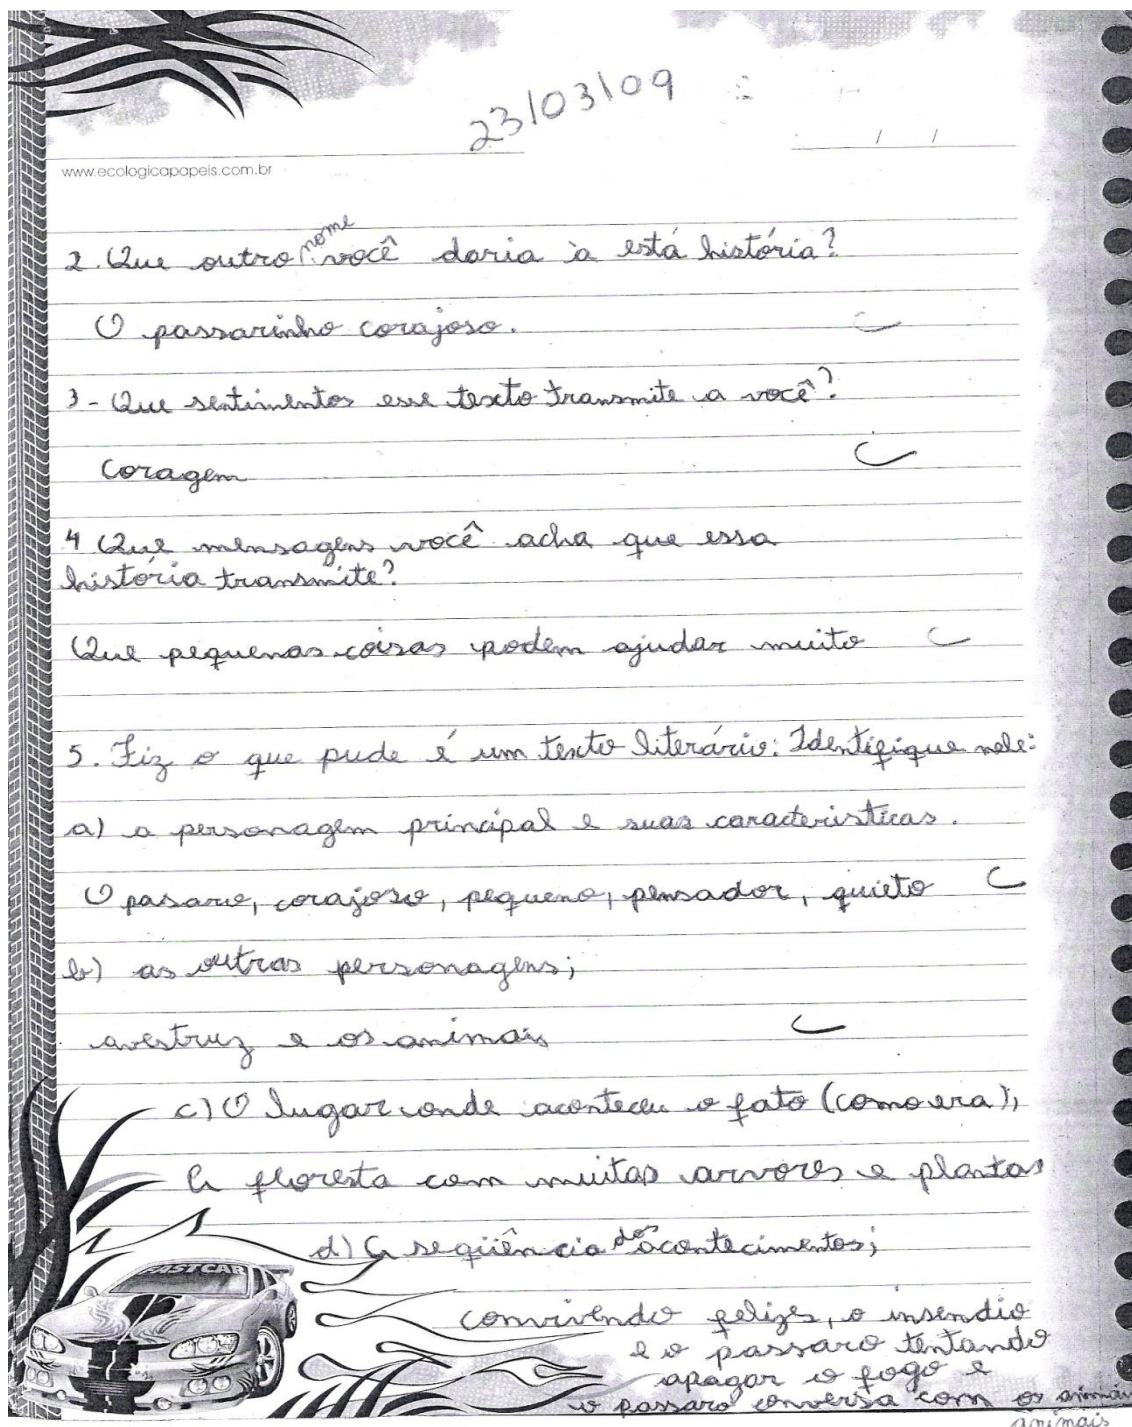 23/03/09
/ /
www.ecologicapapeis.com.br
2. Que outro nome você daria à está história?
O passarinho corajoso.
3 - Que sentimentos esse texto transmite a você?
coragem
4 Que mensagens você acha que essa
história transmite?
Que pequenas coisas podem ajudar muito
5. Fiz o que pude é um texto literário: Identifique nele:
a) a personagem principal e suas caracteristicas.
O pasaro, corajoso, pequeno, pensador, quieto
b) as outras personagens;
avestruz e os animais
c) O lugar onde aconteceu o fato (como era);
A floresta com muitas arvores e plantas
d) A seqüência dos acontecimentos;
FASTCAR
convivendo felizes, o insendio
e o passaro tentando
apagar o fogo e
o passaro conversa com os animais
animais